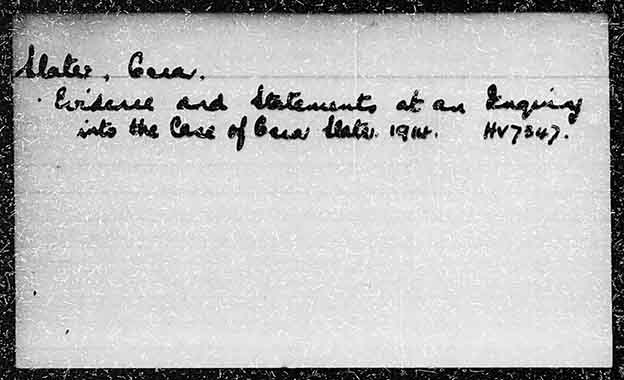 Slater, Oscar.
Evidence and Statements at an Inquiry
into the Case of Oscar Slater. 1914. HV7347.